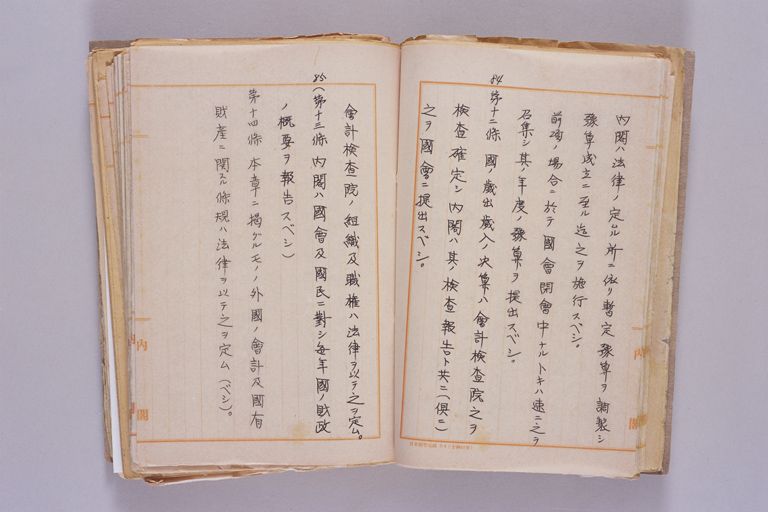 内閣ハ法律ノ定ムル所ニ依リ暫定豫算ヲ調製シ
豫算成立ニ至ル迄之ヲ施行スベシ。
前項ノ場合ニ於テ國會閉會中ナルトキハ速ニ之ヲ
召集シ其ノ年度ノ豫算ヲ提出スベシ。
84 第十二條 國ノ歳出歳入ノ決算ハ會計檢査院之ヲ
檢査確定シ内閣ハ其ノ檢査報告ト共ニ(倶ニ)
之ヲ國會ニ提出スベシ。
會計檢査院ノ組織及職權ハ法律ヲ以テ之ヲ定ム。
85 (第十三條 内閣ハ國會及國民ニ對シ毎年國ノ財政
ノ概要ヲ報告スベシ)
第十四條 本章ニ揭グルモノノ外國ノ會計及國有
財産ニ関スル條規ハ法律ヲ以テ之ヲ定ム(ベシ)。
内閣
内閣